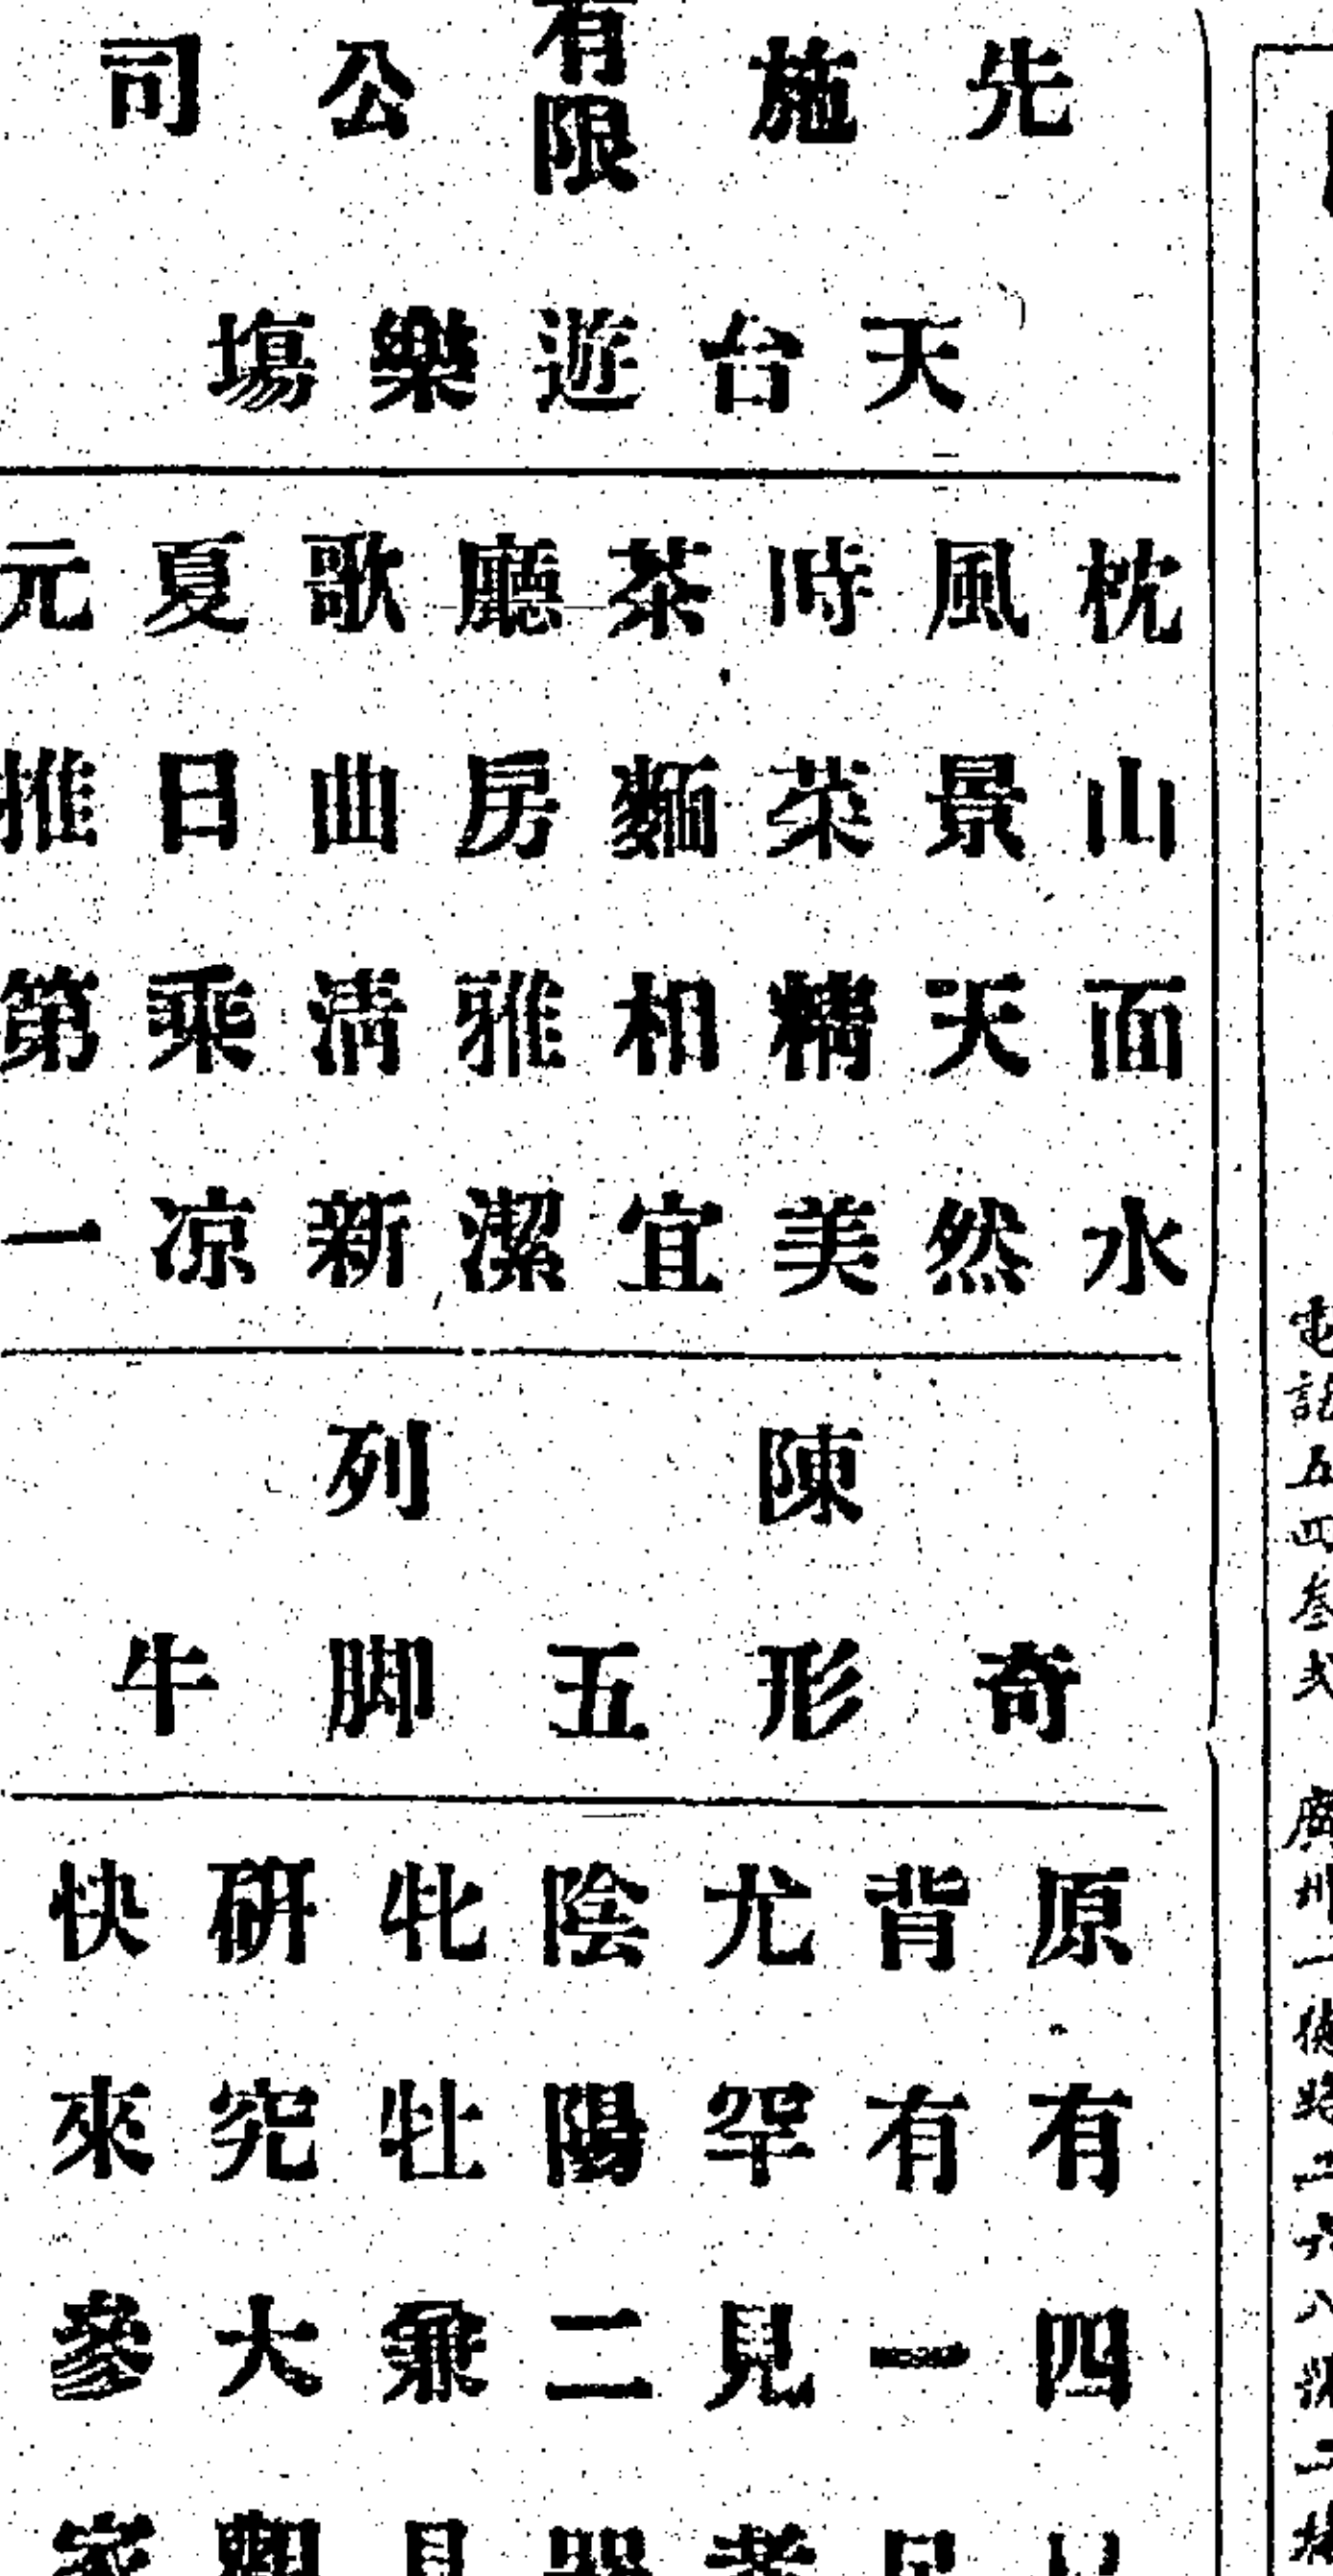 先施有限公司
天台遊樂塲
枕山面水
風景天然
時菜精美
茶麵相宜
廳房雅潔
歌曲清新
夏日乘凉
元推第一
陳列
奇形五脚牛
原有四
背有一
尤罕見者
陰陽二器
牝牡兼具
研究大觀
快來參